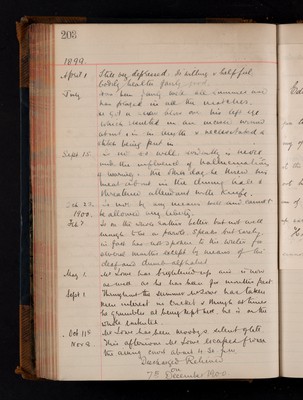 203
1899.
April 1 Still very depressed. Is willing & helpful.
Bodily health fairly good.
July has been fairly well all summer and
has played in all the matches.
He got a over his left eye
which resulted in an wound
about 1 in. in length & necessitated a
stitch being put in.
Sept. 15 is not so well, evidently is under
the influence of hallucinations
of hearing. One day he threw his
meat about in the dining hall &
threatened attendant with knife.
Oct. 22. is not by any means well and cannot
1900. be allowed any liberty.
Feb. 7. Is on the whole rather better but not well
enough to be on parole. Speaks but rarely,
in fact has not spoken to this writer for
several months except by means of the
deaf and dumb alphabet
May 1. Mr Lowe has brightened up and is now
as well as he has been for months past
Sept 1 Throughout the summer Mr Lowe has taken
keen interest in cricket & though at times
he grumbles at being kept here he is on the
whole
Oct 11th Mr Lowe has been moody & silent of late
Nov 2. This afternoon Mr Lowe escaped from
the airing court about 4.30 p.m.
Discharged Relieved
on
7th December 1900.